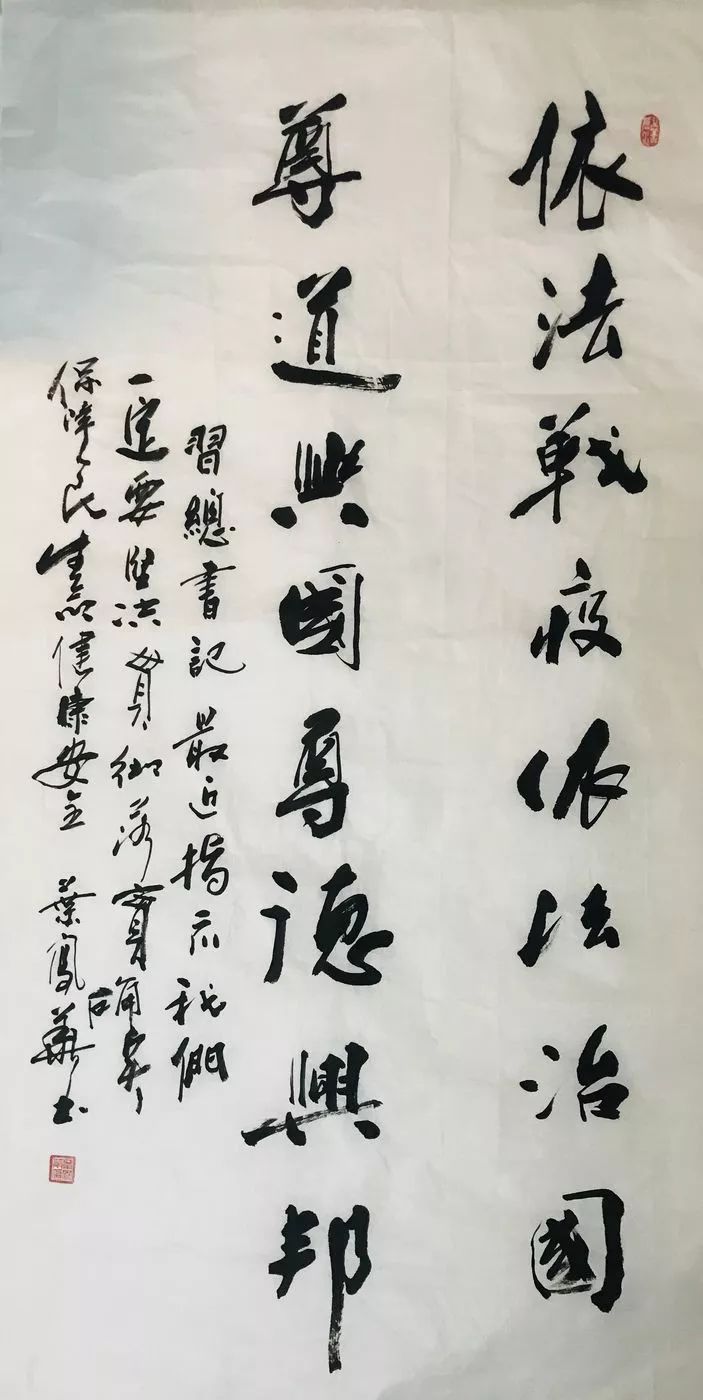 依法戰疫依法治國
尊道興國尊德興邦
習總書記最近指示我們
一定要堅決貫彻落實確实
保障人民生命健康安全 葉鳳華书